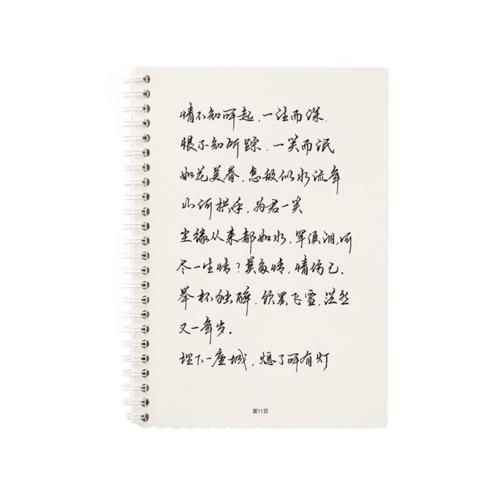 情不知所起，一往而深
恨不知所踪，一笑而泯
如花美眷，怎敌似水流年
山河拱手，为君一笑
尘缘从来都如水，罕须泪，何
尽一生情？莫多情，情伤己。
举杯独醉，饮罢飞雪，茫然
又一年岁。
埋下一座城，熄了所有灯
第11页